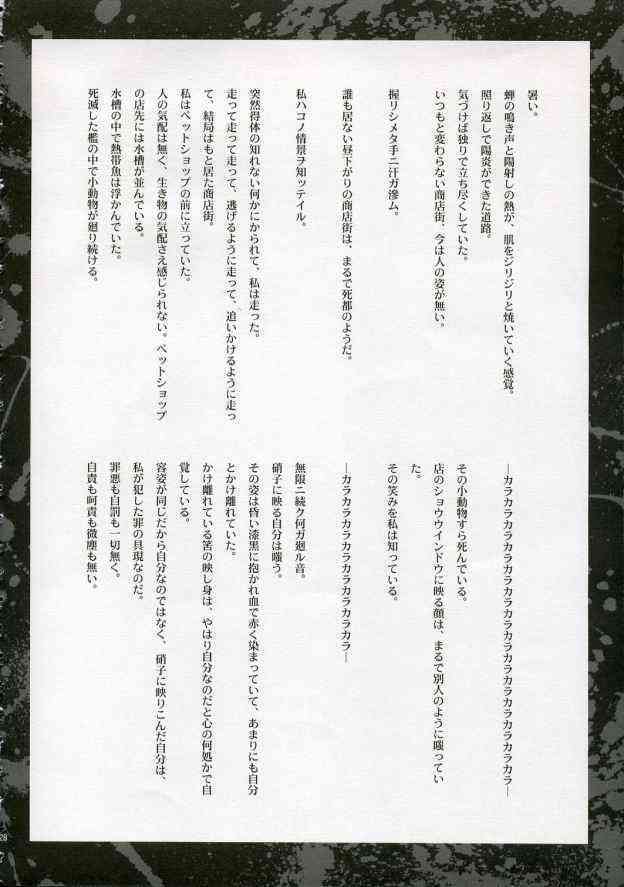 暑い。
蝉の鳴き声と陽射しの熱が、肌をジリジリと焼いていく感覚。
照り返しで陽炎ができた道路。
気づけば独りで立ち尽くしていた。
いつもと変わらない商店街、今は人の姿が無い。
握リシメタ手ニ汗ガ滲ム。
誰も居ない昼下がりの商店街は、まるで死都のようだ。
私ハコノ情景ヲ知ッテイル。
突然得体の知れない何かにかられて、私は走った。
走って走って走って、逃げるように走って、追いかけるように走っ
て、結局はもと居た商店街。
私はペットショップの前に立っていた。
人の気配は無く、生き物の気配さえ感じられない。ペットショップ
の店先には水槽が並んでいる。
水槽の中で熱帯魚は浮かんでいた。
死滅した檻の中で小動物が廻り続ける。
―カラカラカラカラカラカラカラカラカラカラカラカラカラカラ―
その小動物すら死んでいる。
店のショウウインドウに映る顔は、まるで別人のように嗤ってい
た。
その笑みを私は知っている。
―カラカラカラカラカラカラカラカラ―
無限ニ続ク何ガ廻ル音。
硝子に映る自分は嗤う。
その姿は昏い漆黒に抱かれ血で赤く染まっていて、あまりにも自分
とかけ離れていた。
かけ離れている筈の映し身は、やはり自分なのだと心の何処かで自
覚している。
容姿が同じだから自分なのではなく、硝子に映りこんだ自分は、
私が犯した罪の具現なのだ。
罪悪も自罰も一切無く。
自責も呵責も微塵も無い。
28